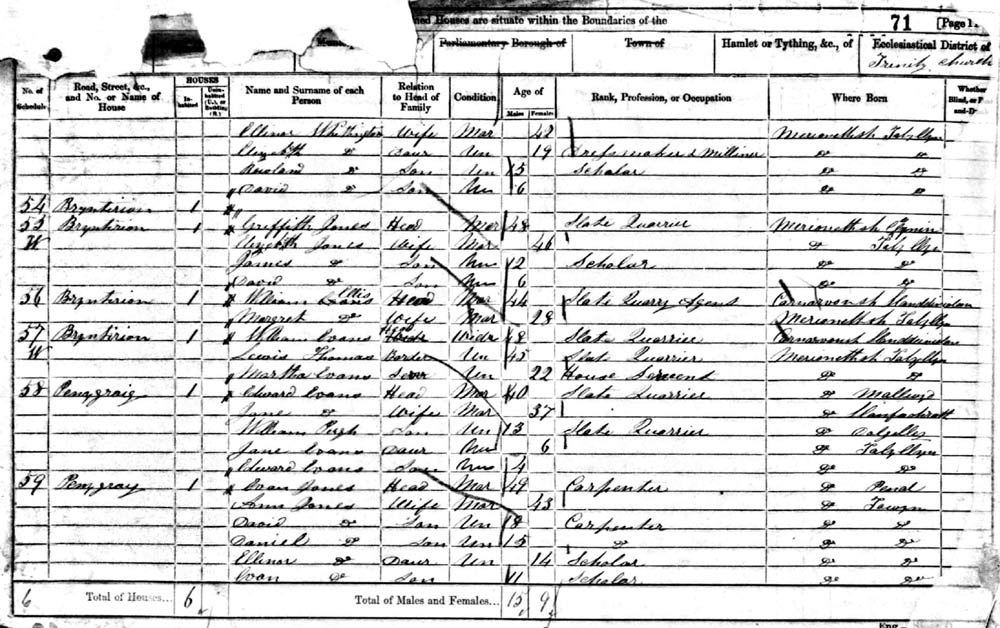 ned Houses are situate within the Boundaries of the
71 [Page 1
Parliamentary Borough of Town of Hamlet or Tything, &c., of Ecclesiastical District of
Trinity Church
No. of Schedule Road, Street, &c., and No. or Name of House HOUSES Inhabited Uninhabited (U.), or Building (B.) Name and Surname of each Person Relation to Head of Family Condition Age of Males Females Rank, Profession, or Occupation Where Born Whether Blind, or and-D
Ellinor Whittington Wife Mar 42 Merionettsh Talyllyn
Elizabeth Do Daur Un 19 Dressmaker & Milliner Do Do
Rowland Do Son Un 15 Scholar Do Do
David Do Son Un 6 Do Do
54 Bryntirion 1
55 Bryntirion 1 Griffith Jones Head Mar 48 Slate Quarrier Merionettsh
W Elizabeth Jones Wife Mar 46 Do Talyllyn
James Do Son Un 12 Scholar Do Do
David Do Son Un 6 Do Do
56 Bryntirion 1 William Ellis Head Mar 44 Slate Quarry Agent Carnarvonsh
Margret Do Wife Mar 28 Merionettsh Talyllyn
57 Bryntirion 1 William Evans Head Widr 48 Slate Quarrier Carnarvonsh
W Lewis Thomas Border Un 45 Slate Quarrier Merionettsh Talyllyn
Martha Evans Un 22 House Servent Do Do
58 Penygraig 1 Edward Evans Head Mar 40 Slate Quarrier Do
Jane Do Wife Mar 37 Do
William Pugh Son Un 13 Slate Quarrier Do Dolgelley
Jane Evans Daur Un 6 Do Talyllyn
Edward Evans Son Un 4 Do Do
59 1 Evan Jones Head Mar 49 Carpenter Do Penal
Ann Jones Wife Mar 43 Do Towyn
David Do Son Un Carpenter Do Do
Daniel Do Son Un 15 Do Do Do
Ellinor Do Daur Un 14 Scholar Do Do
Evan Do Son 11 Scholar Do Do
6 Total of Houses... 6 Total of Males and Females... 9
Eng.